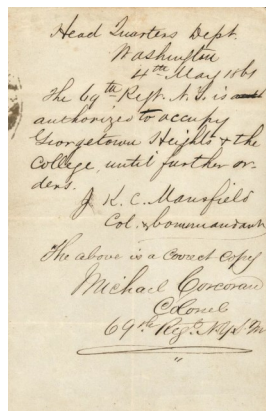 Head Quarters Dept.
Washington
4th May 1861
The 69th Regt. N.Y. is
authorized to occupy
Georgetown Heights & the
College, until further or-
ders.
J. K. C. Mansfield
Col. & Commandant
The above is a correct copy
Michael Corcoran
Colonel
69th Regt. N.Y.S.M
"